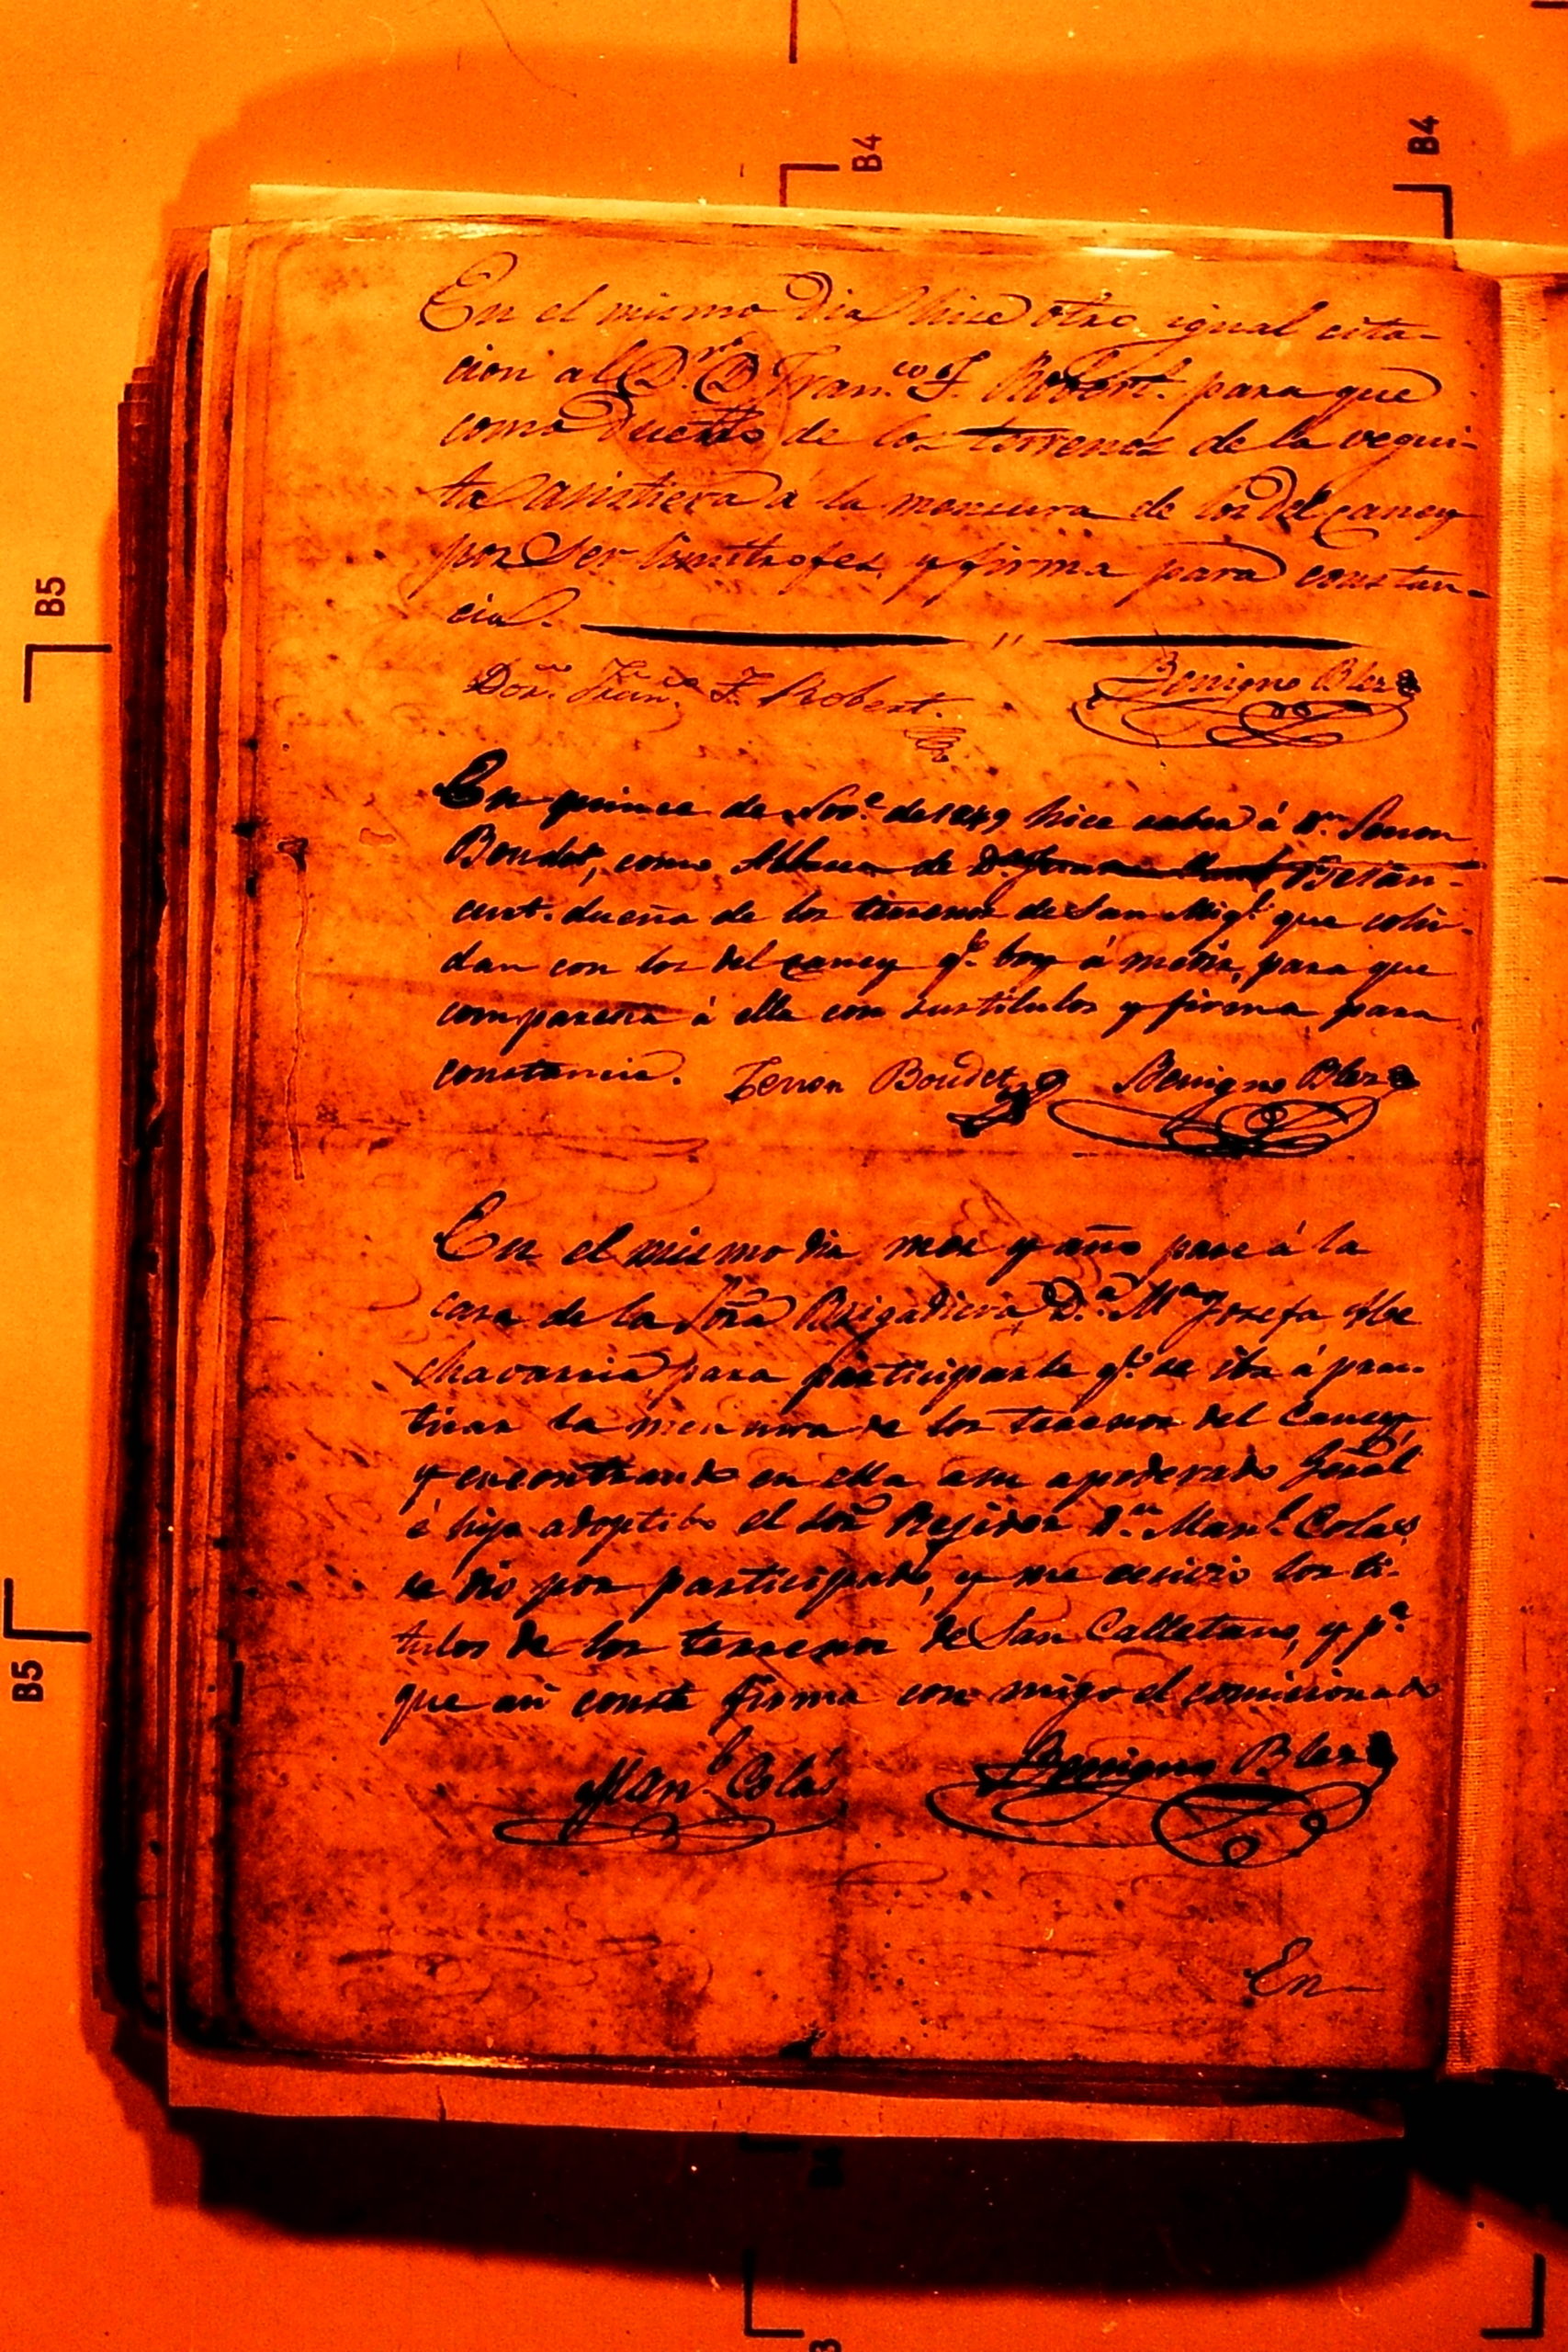 B4
B4
En el mismo dia hice otra igual cita-
cion al D.r D. Fran.co F. Robert. para que
como Dueño de los terrenos de la vegui-
ta asistiera á la mensura de los del caney
por Ser limitrofes, y firma para constan-
cia.
Don. Fran.co F. Robert.
Benigno Blez
En quince de Nov.e de 1849 hice saber á D.n Senon
Boudet, como Albacea de D.a Betan-
curt. dueña de los terrenos de San Mig.l que colin-
dan con los del caney q.e boy á medir, para que
comparesca á ella con sus titulos y firma para
constancia.
Zenon Boudet
Benigno Blez
En el mismo dia mes y año pase á la
casa de la Sora Brigadiera D.a M.a Josefa Ahe
chavarria para participarle q.e se iba á prac-
ticar la mensura de los terrenos del Caney
y encontrando en ella a su apoderado Jeral
é hijo adoptibo el Sor Regidor D.n Man.l Colás
se dio por participado, y me los ti-
tulos de los terrenos de San Calletano, y p.a
que asi conste firma con migo el comicionado
Man.l Colás
Benigno Blez
En
B5
B5